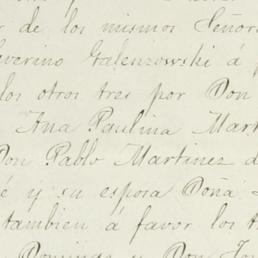 r de los mismos Señor
everino Galenzowski á p
los otros tres por Don
Ana Paulina Mart
Don Pablo Martinez d
é y su esposa Doña
tambien á favor los t
Domingo y Don Jo